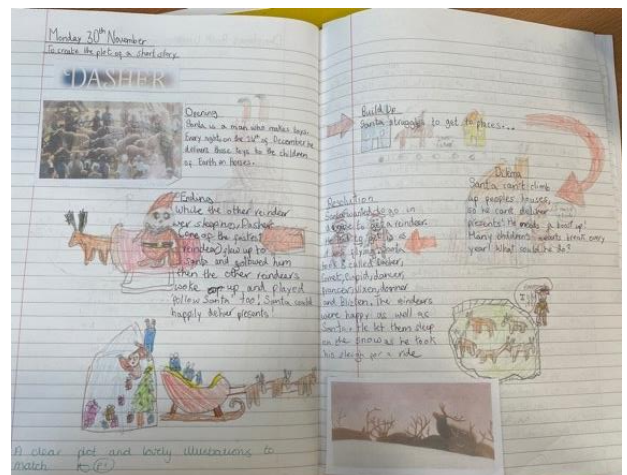 Monday 30th November
To create the plot of a short story.
DASHER
Opening
Santa is a man who makes toys.
Every night on the 24th of December he
delivers those toys to the children
of Earth on horses.
Build Up
Santa struggles to get to places...
Dilema
Santa can't climb
up peoples houses,
so he can't deliver
presents! He needs a boost up!
Many children's hearts break every
year! What could he do?
Resolution
Santa wanted to go in
to get a reindeer.
called Dasher,
Comet, Cupid, dancer,
prancer, vixen, donner
and Blitzen. The reindeers
were happy as well as
Santa. He let them sleep
on the snow as he took
his sleigh for a ride
Ending
While the other reindeer
wer sleeping, Dasher
(one of the fastest
reindeer) flew up to
Santa and followed him
then the other reindeers
woke up and played
follow Santa too! Santa could
happily deliver presents!
A clear plot and lovely illustrations to
match